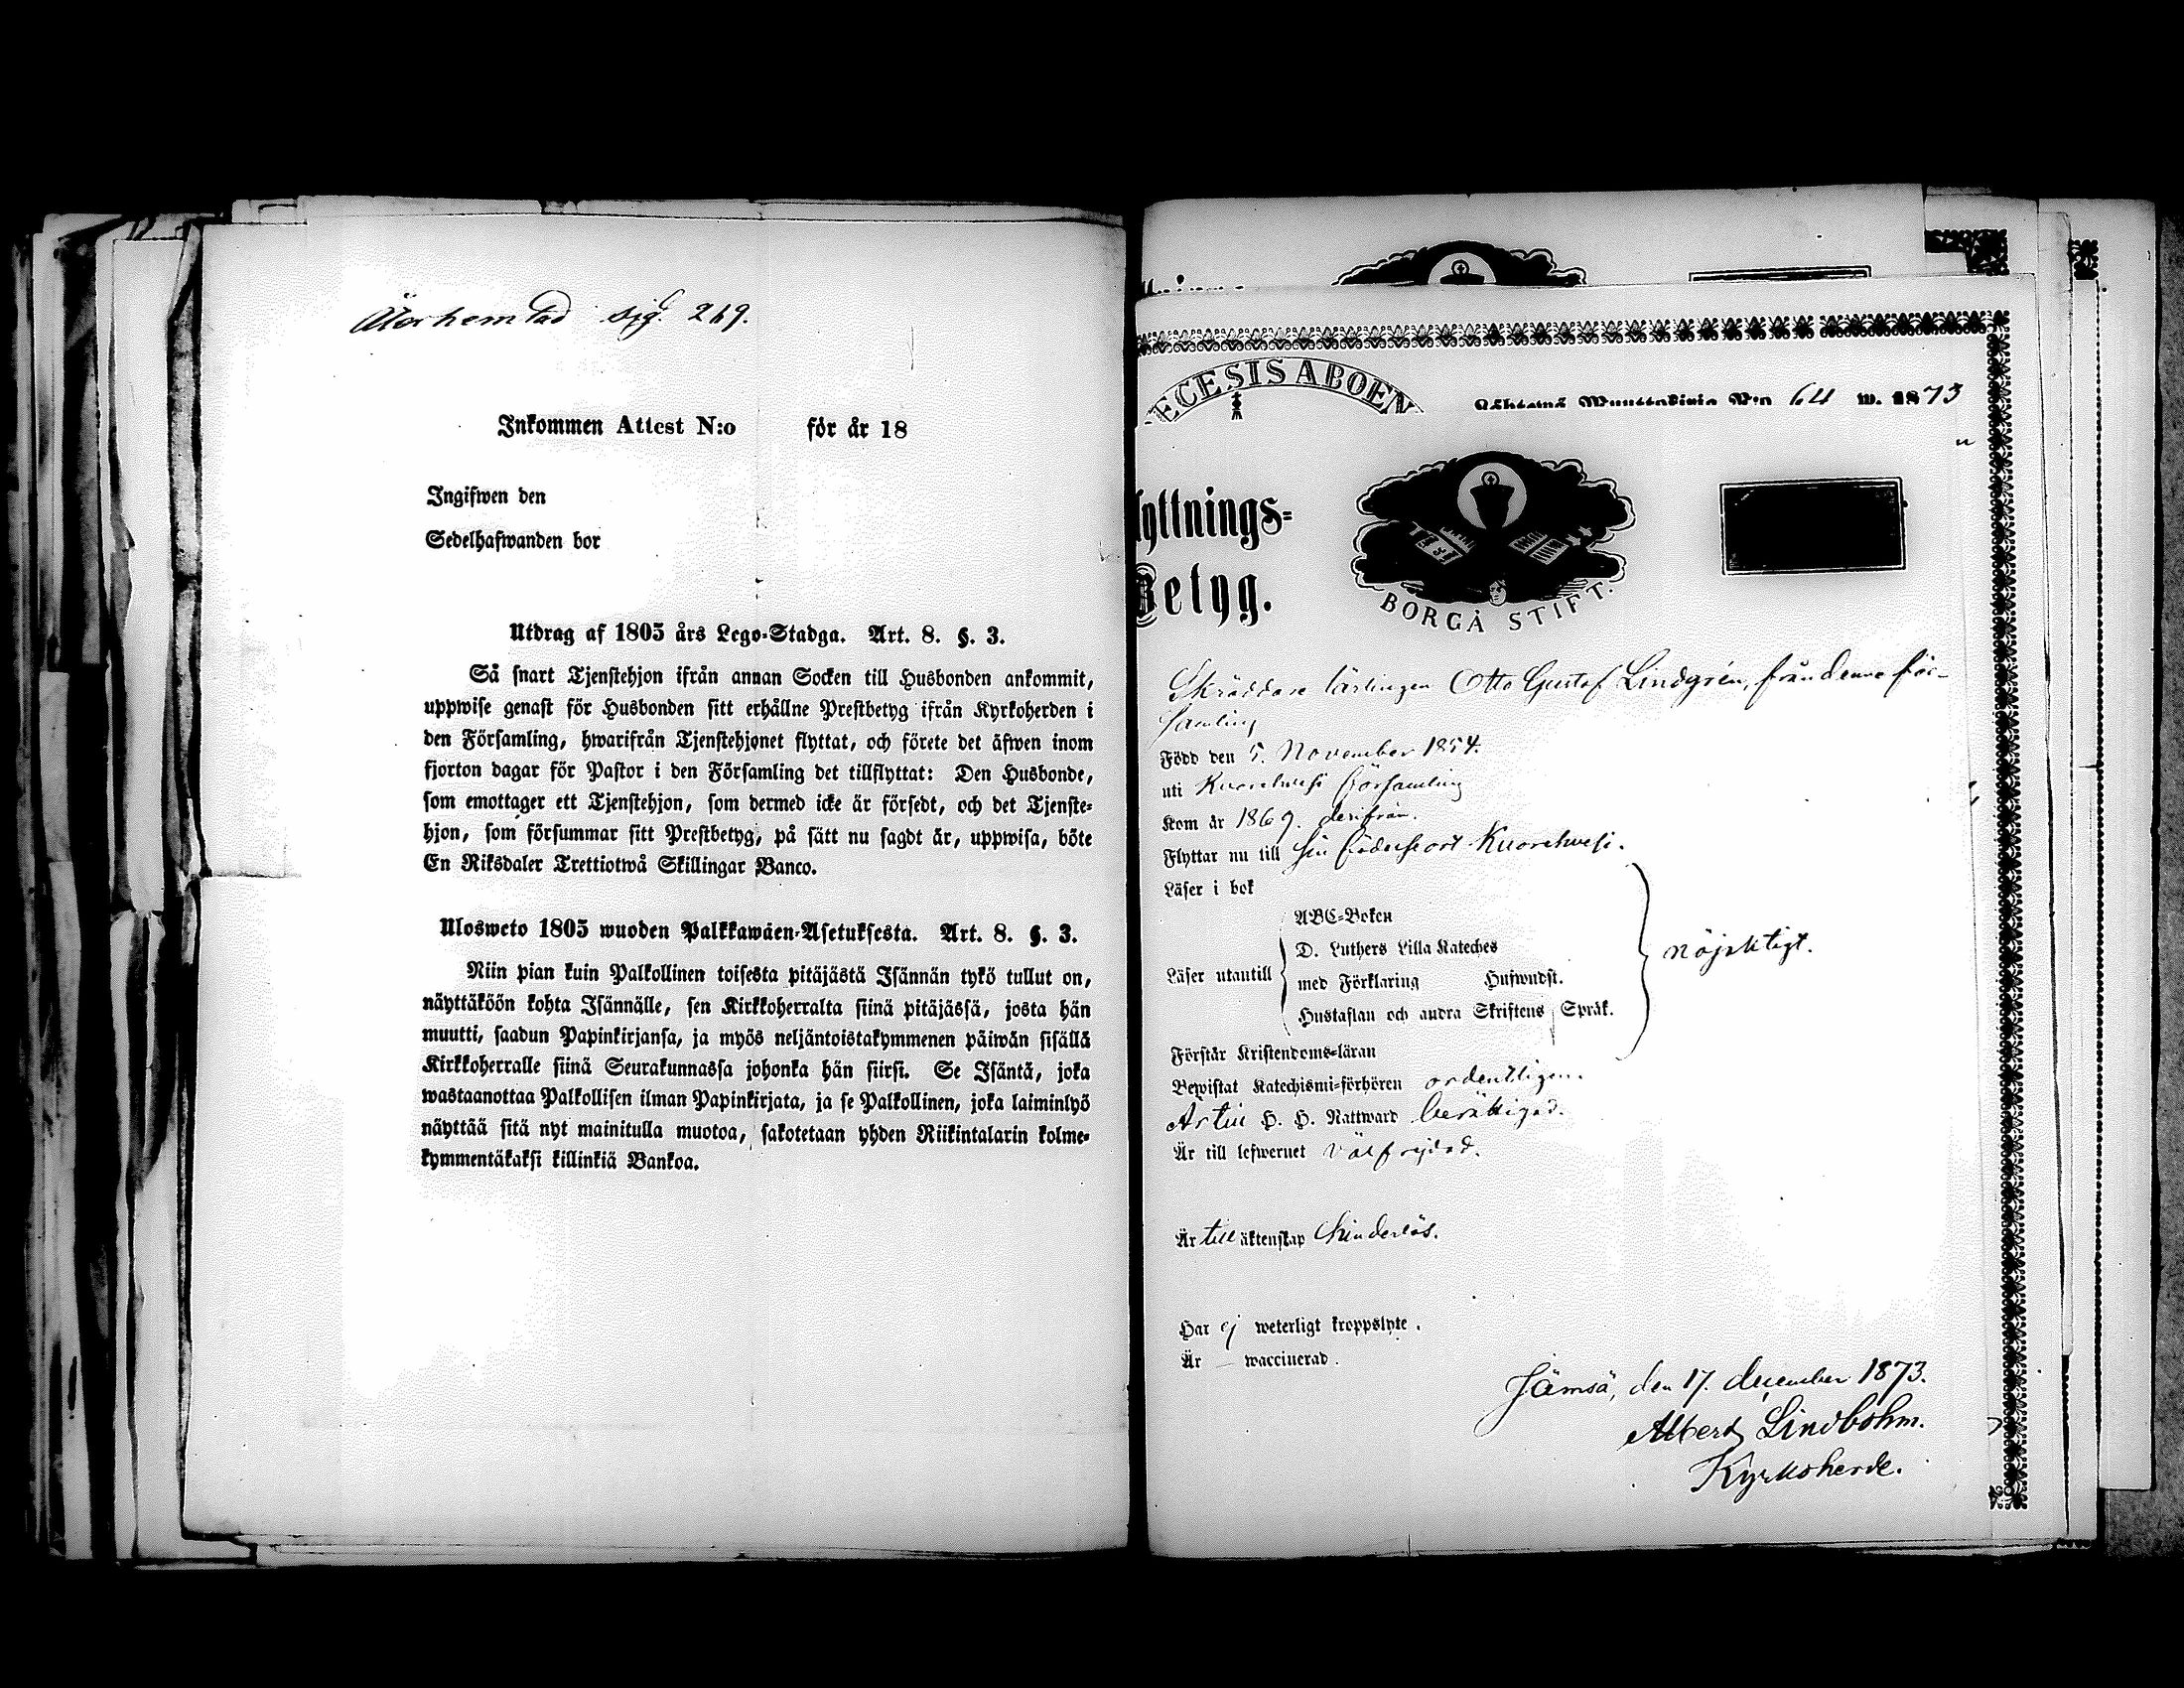 Återhemtad sig. 219.
Inkommen Attest N:o för år 18
Ingifwen den
Sedelhafwanden bor
Utdrag af 1805 års Lego-Stadga. Art. 8. §. 3.
Så snart Tjenstehjon ifrån annan Socken till Husbonden ankommit,
uppwise genast för Husbonden sitt erhållne Prestbetyg ifrån Kyrkoherden i
den Församling, hwarifrån Tjenstehjonet flyttat, och förete det äfwen inom
fjorton dagar för Pastor i den Församling det tillflyttat: Den Husbonde,
som emottager ett Tjenstehjon, som dermed icke är försedt, och det Tjenste-
hjon, som försummar sitt Prestbetyg, på sätt nu sagdt är, uppwisa, böte
En Riksdaler Trettiotwå Skillingar Banco.
Ulosweto 1805 wuoden Palkkawäen-Asetuksesta. Art. 8. §. 3.
Niin pian kuin Palkollinen toisesta pitäjästä Isännän tykö tullut on,
näyttäköön kohta Isännälle, sen Kirkkoherralta siinä pitäjässä, josta hän
muutti, saadun Papinkirjansa, ja myös neljäntoistakymmenen päiwän sisällä
Kirkkoherralle siinä Seurakunnassa johonka hän siirsi. Se Isäntä, joka
wastaanottaa Palkollisen ilman Papinkirjata, ja se Palkollinen, joka laiminlyö
näyttää sitä nyt mainitulla muotoa, sakotetaan yhden Riikintalarin kolme-
kymmentäkaksi killinkiä Bankoa.
ECESIS ABOEN
Lähtewä Muuttokirja N:o 64 w. 1873
lyttnings-
Betyg.
BORGÅ STIFT.
Skräddare lärlingen Otto Gustaf Lindgrén, från denna för-
samling
Född den 5. November 1854.
uti Kuorehvesi församling
Kom år 1869. derifrån.
Flyttar nu till sin födelseort Kuorehvesi.
Läser i bok
ABC-Boken
D. Luthers Lilla Kateches
Läser utantill
med Förklaring Hufwudst.
Hustaflan och andra Skriftens Språk.
nöjaktigt.
Förstår Kristendoms-läran
Bewistat Katechismi-förhören ordentligen.
Är till H. H. Nattward berättigad.
Är till lefwernet välfrejdad.
Är till äktenskap hinderlös.
Har ej weterligt kroppslyte.
Är — waccinerad.
Jämsä, den 17. december 1873.
Albert Lindbohm.
Kyrkoherde.